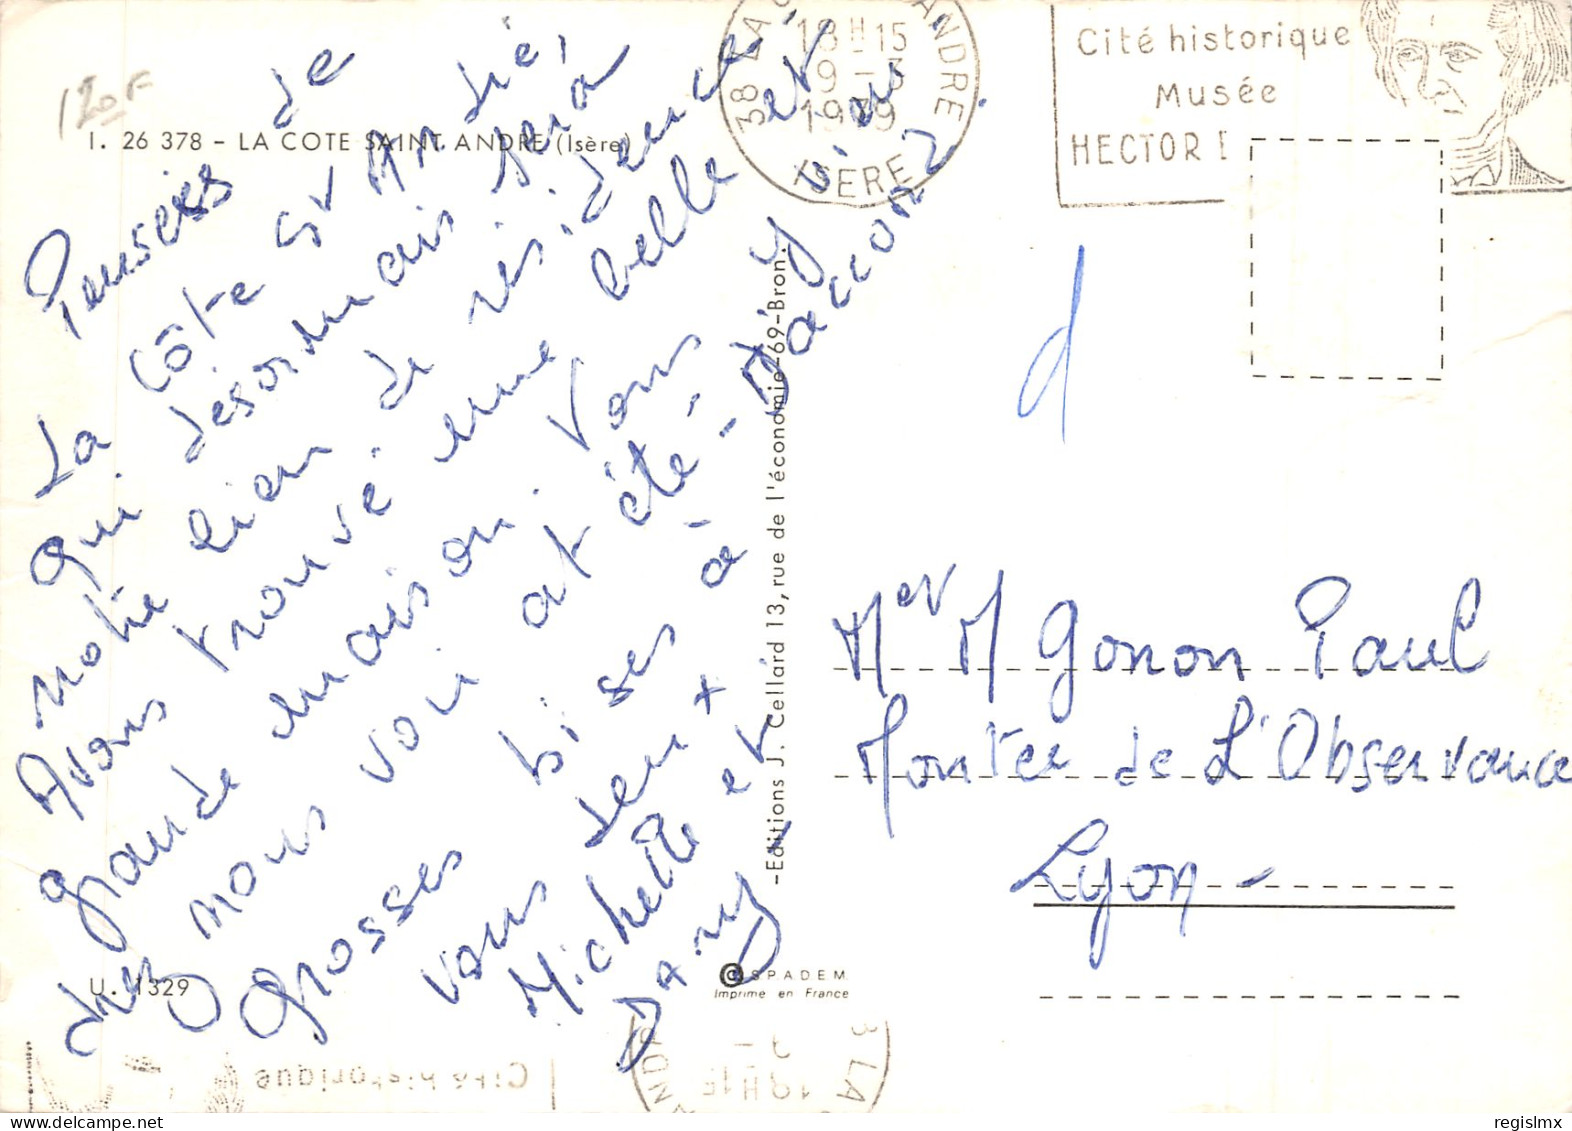 120F
I. 26 378 – LA COTE SAINT ANDRE (Isère)
Pensées de
La Côte St André,
qui désormais sera
notre lieu de résidence
Avons trouvé une belle et
grande maison. Vous
nous voir cet été - D'accord ?
Grosses bises à
vous deux +
Michelle et
Dany
38 LA CÔTE ST ANDRE
18H15
9 - 3
1979
ISERE
Cité historique
Musée
HECTOR
–Editions J. Cellard 13, rue de l'économie–69–Bron.
d
Me et M Gonon Paul
Montée de L'Observance
Lyon –
U. 1329
© SPADEM
Imprimé en France
Cité historique
18H15
regislmx